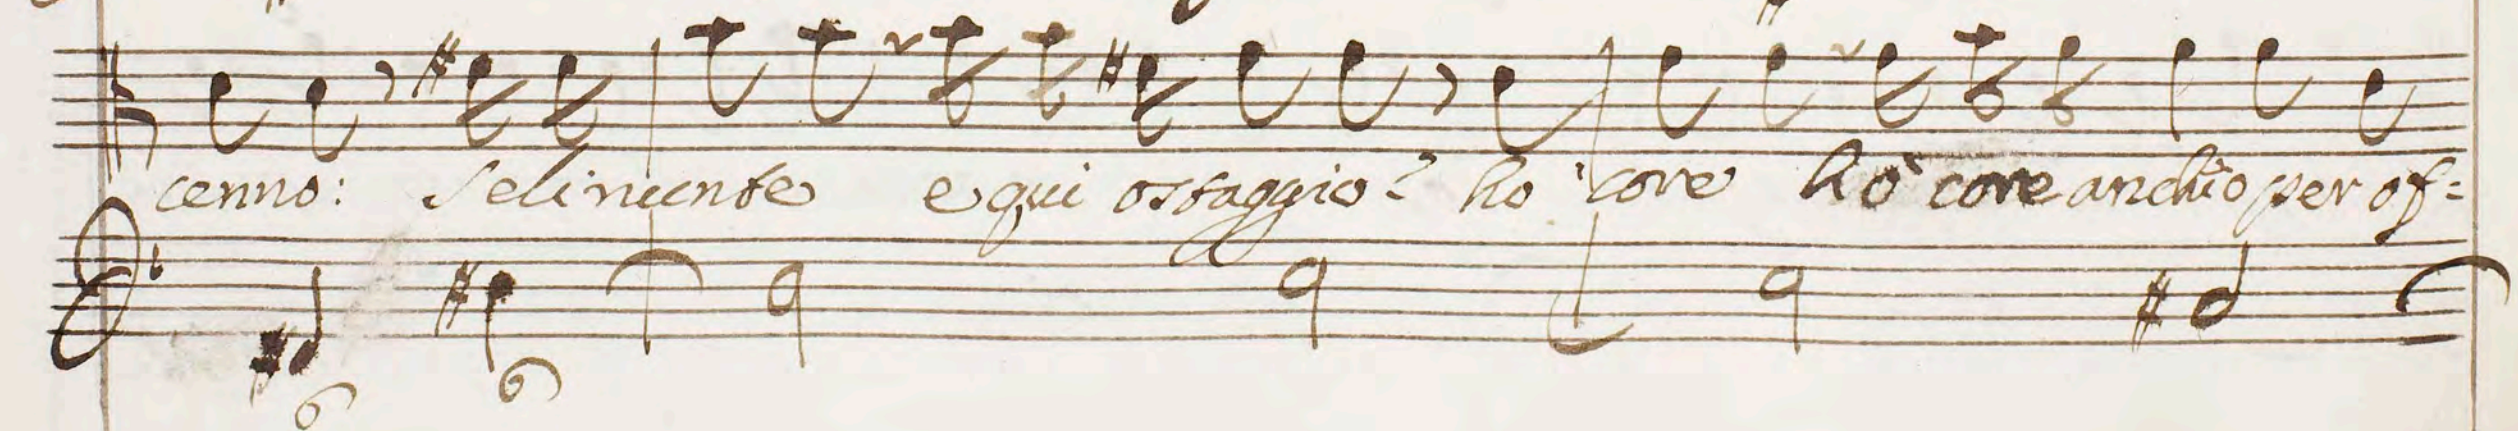 cenno: Selinunte e qui ostaggio? ho core hò core anch'io per of=
6 6